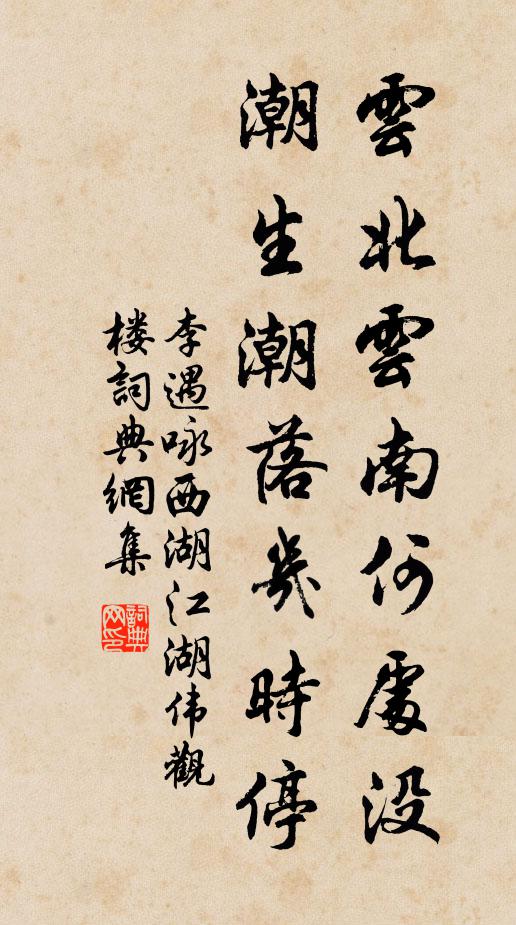 雲北雲南何處没
潮生潮落幾時停
李遇咏西湖江湖伟觀
楼詞典網集
詞典网印